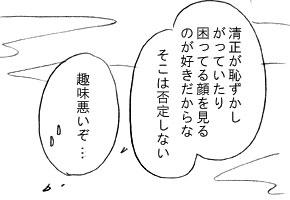 清正が恥ずかし
がっていたり
困ってる顔を見る
のが好きだからな
そこは否定しない
趣味悪いぞ…